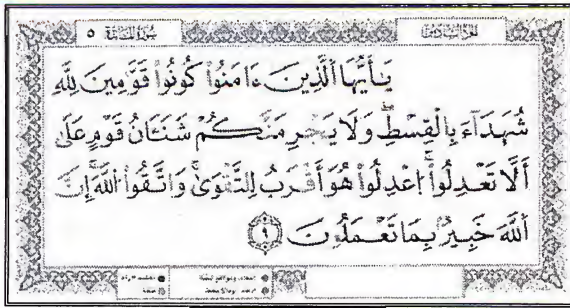 سُورَةُ المَائِدَة ٥
الجزء السادس
يَـٰٓأَيُّهَا ٱلَّذِينَ ءَامَنُوا۟ كُونُوا۟ قَوَّٰمِينَ لِلَّهِ
شُهَدَآءَ بِٱلْقِسْطِ ۖ وَلَا يَجْرِمَنَّكُمْ شَنَـَٔانُ قَوْمٍ عَلَىٰٓ
أَلَّا تَعْدِلُوا۟ ۚ ٱعْدِلُوا۟ هُوَ أَقْرَبُ لِلتَّقْوَىٰ ۖ وَٱتَّقُوا۟ ٱللَّهَ ۚ إِنَّ
ٱللَّهَ خَبِيرٌۢ بِمَا تَعْمَلُونَ ٩